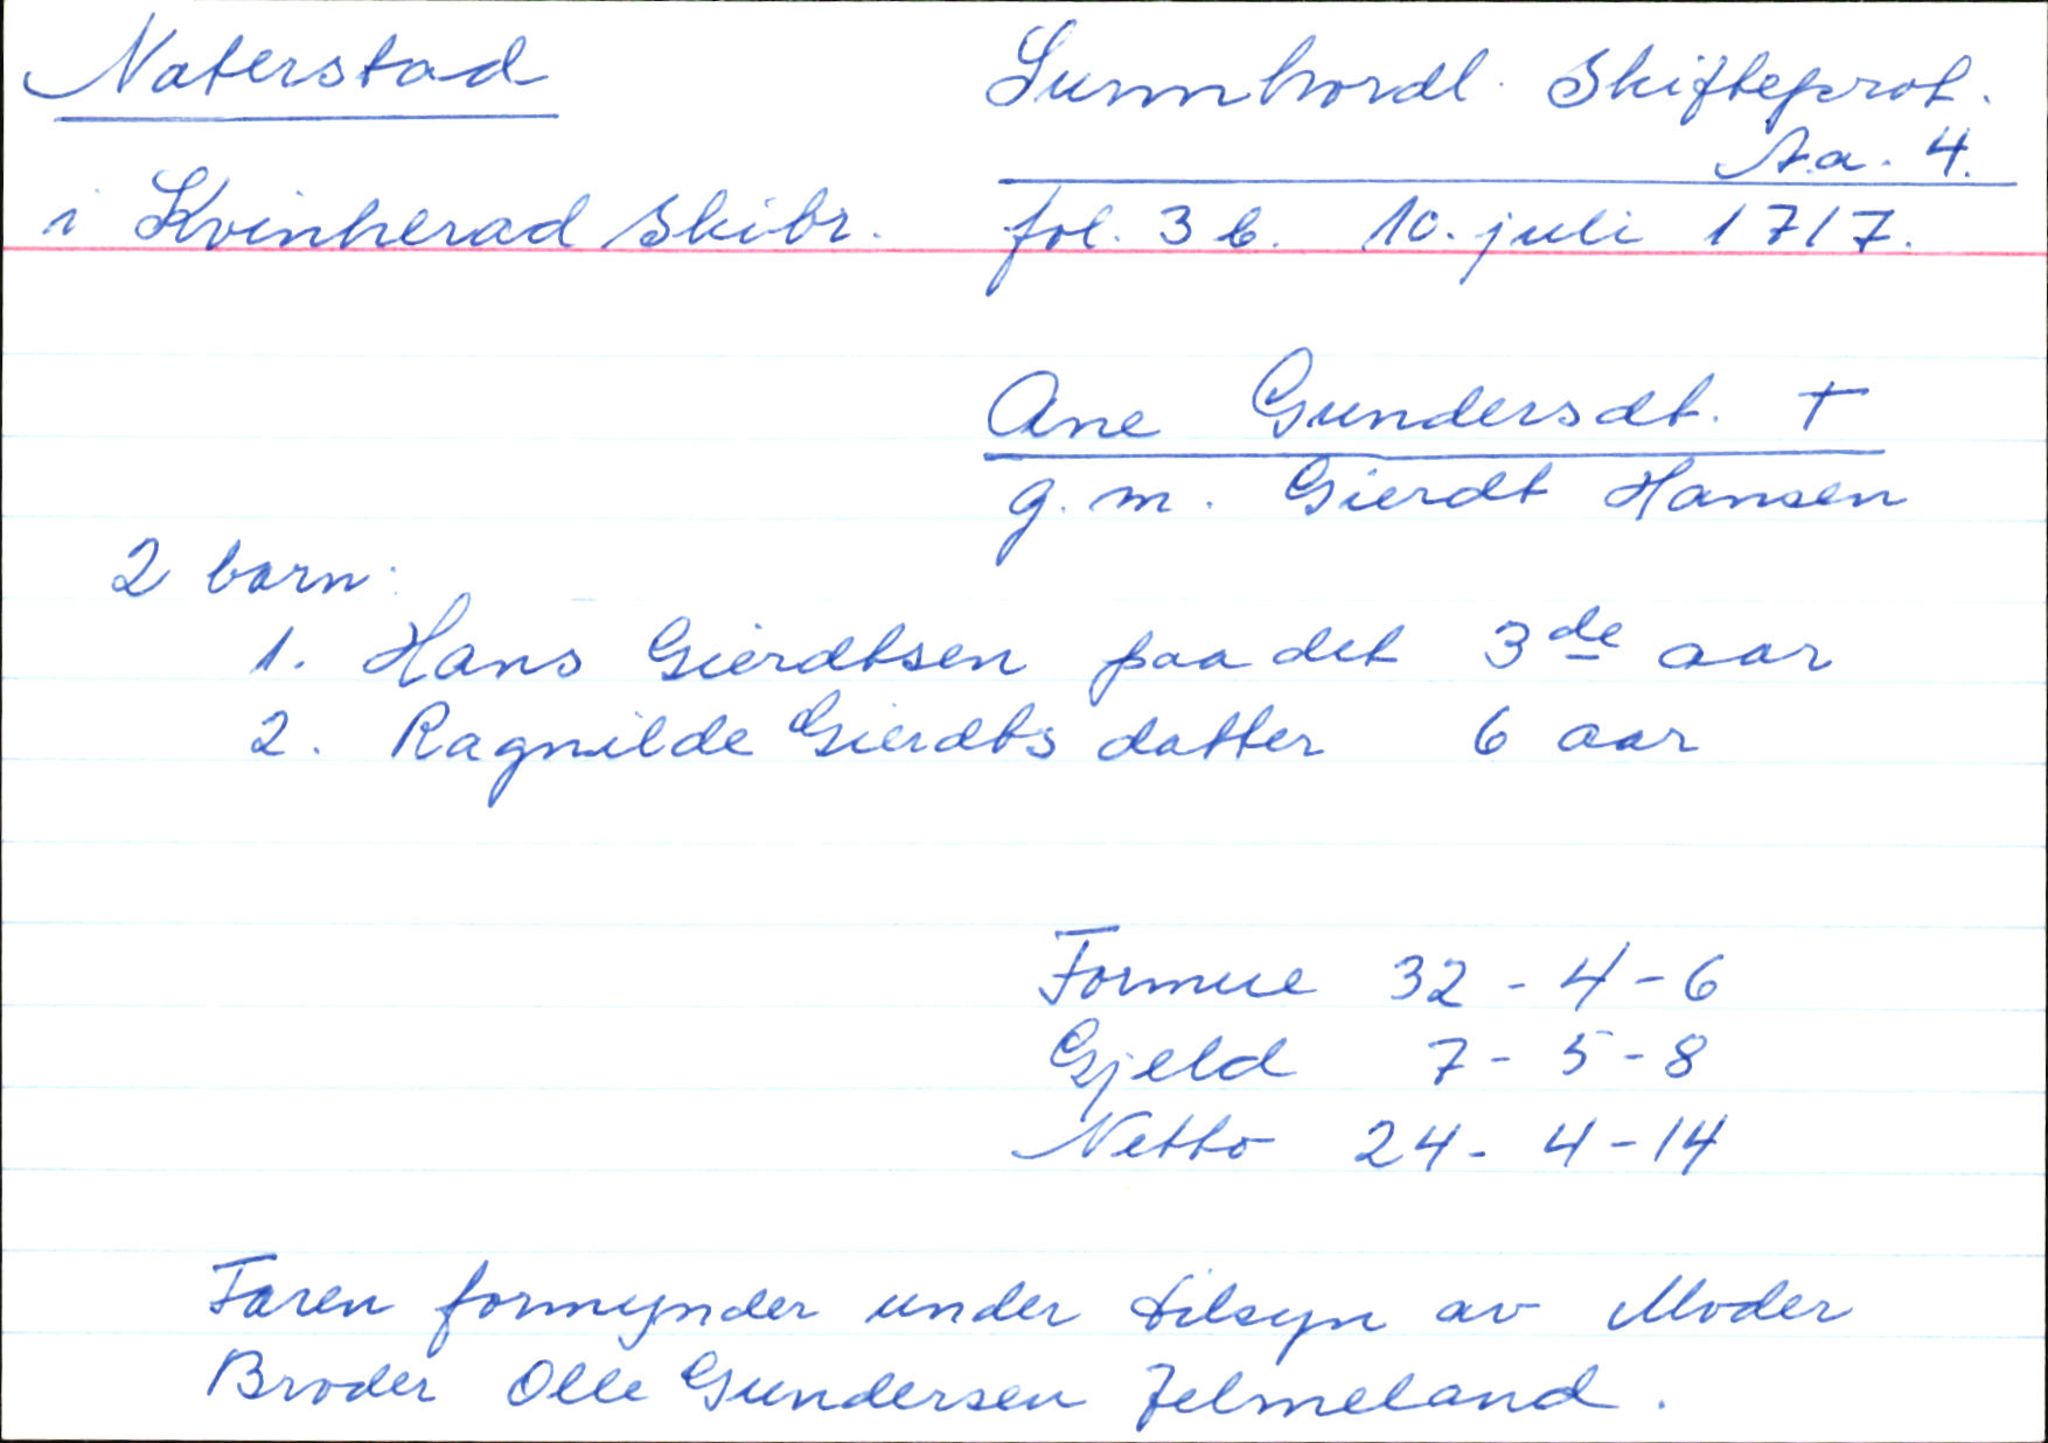 Naterstad
Sunnhordl. Skifteprot.
A.a. 4.
i Kvinherad Skibr.
fol. 3 b. 10. juli 1717.
Ane Gundersdt. †
g. m. Gierdt Hansen
2 barn:
1. Hans Gierdtsen paa det 3de aar
2. Ragnilde Gierdts datter 6 aar
Formue 32 - 4 - 6
Gjeld 7 - 5 - 8
Netto 24 - 4 - 14
Faren formynder under tilsyn av Moder
Broder Olle Gundersen Felmeland.